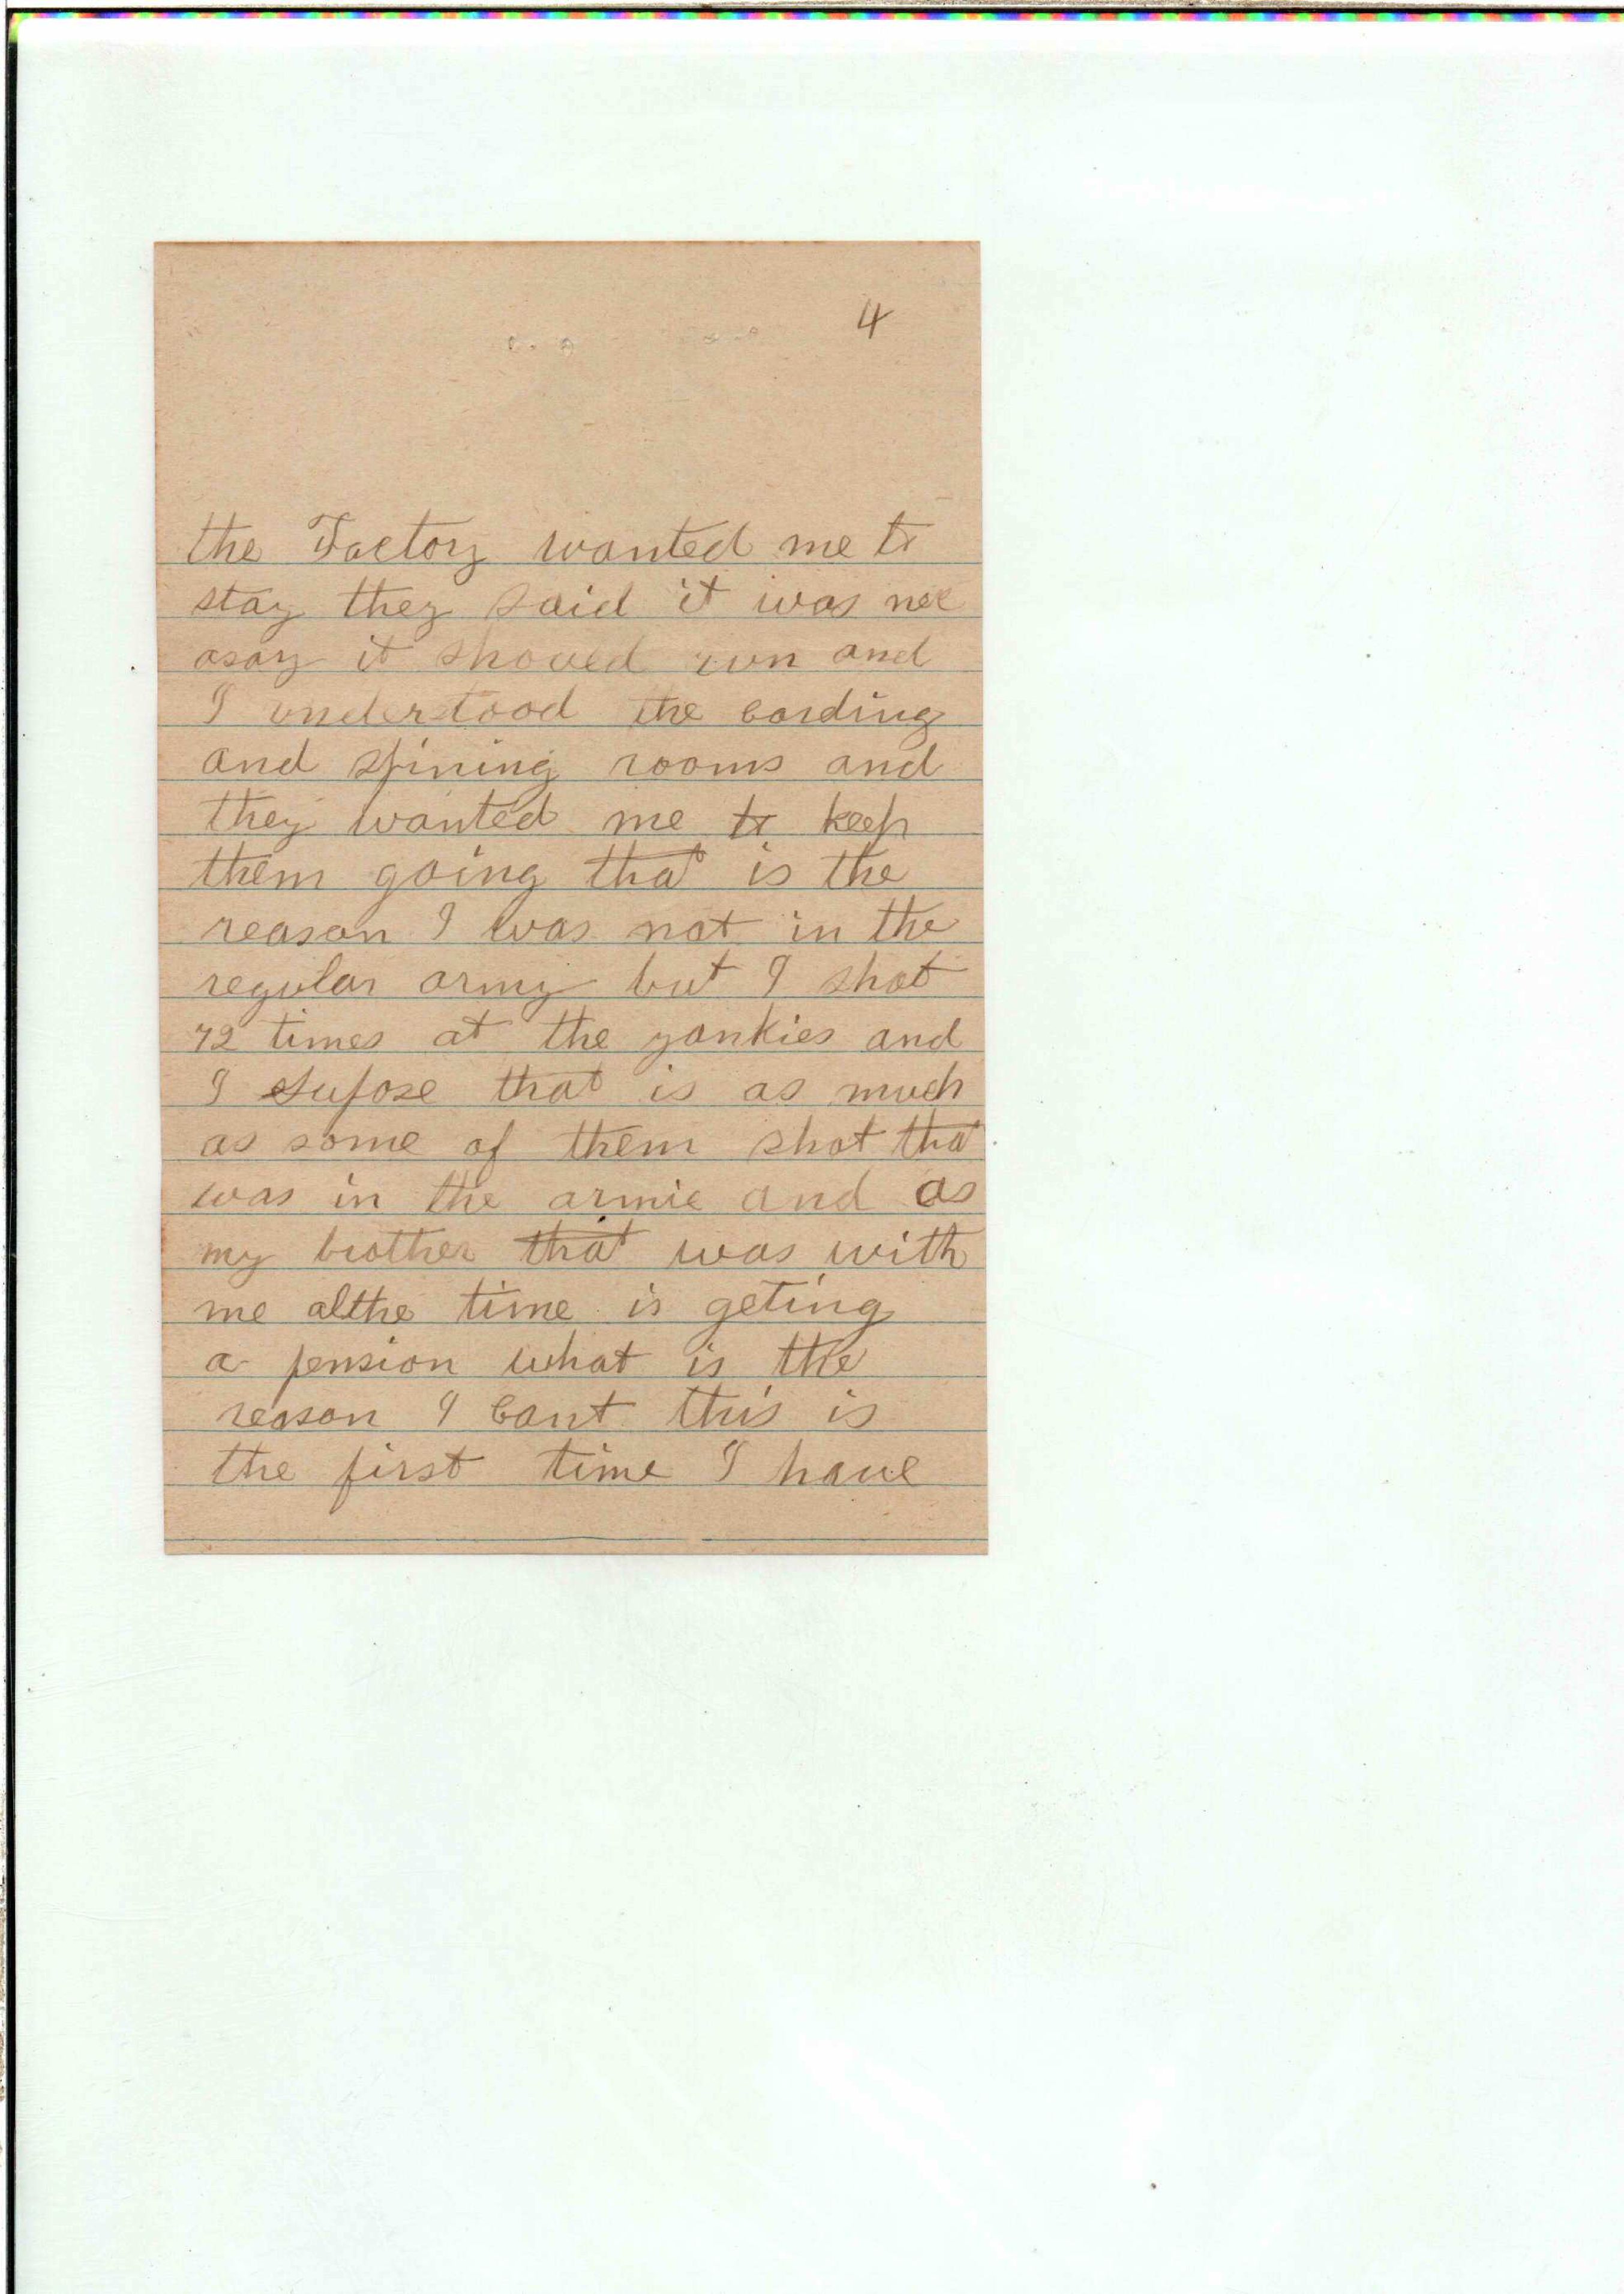 4
the Factory wanted me to
stay they said it was nec
asary it shoued run and
I understood the carding
and spining rooms and
they wanted me to keep
them going that is the
reason I was not in the
regular army but I shot
72 times at the yankies and
I supose that is as much
as some of them shot that
was in the armie and as
my brother that was with
me althe time is geting
a pension what is the
reason I cant this is
the first time I have